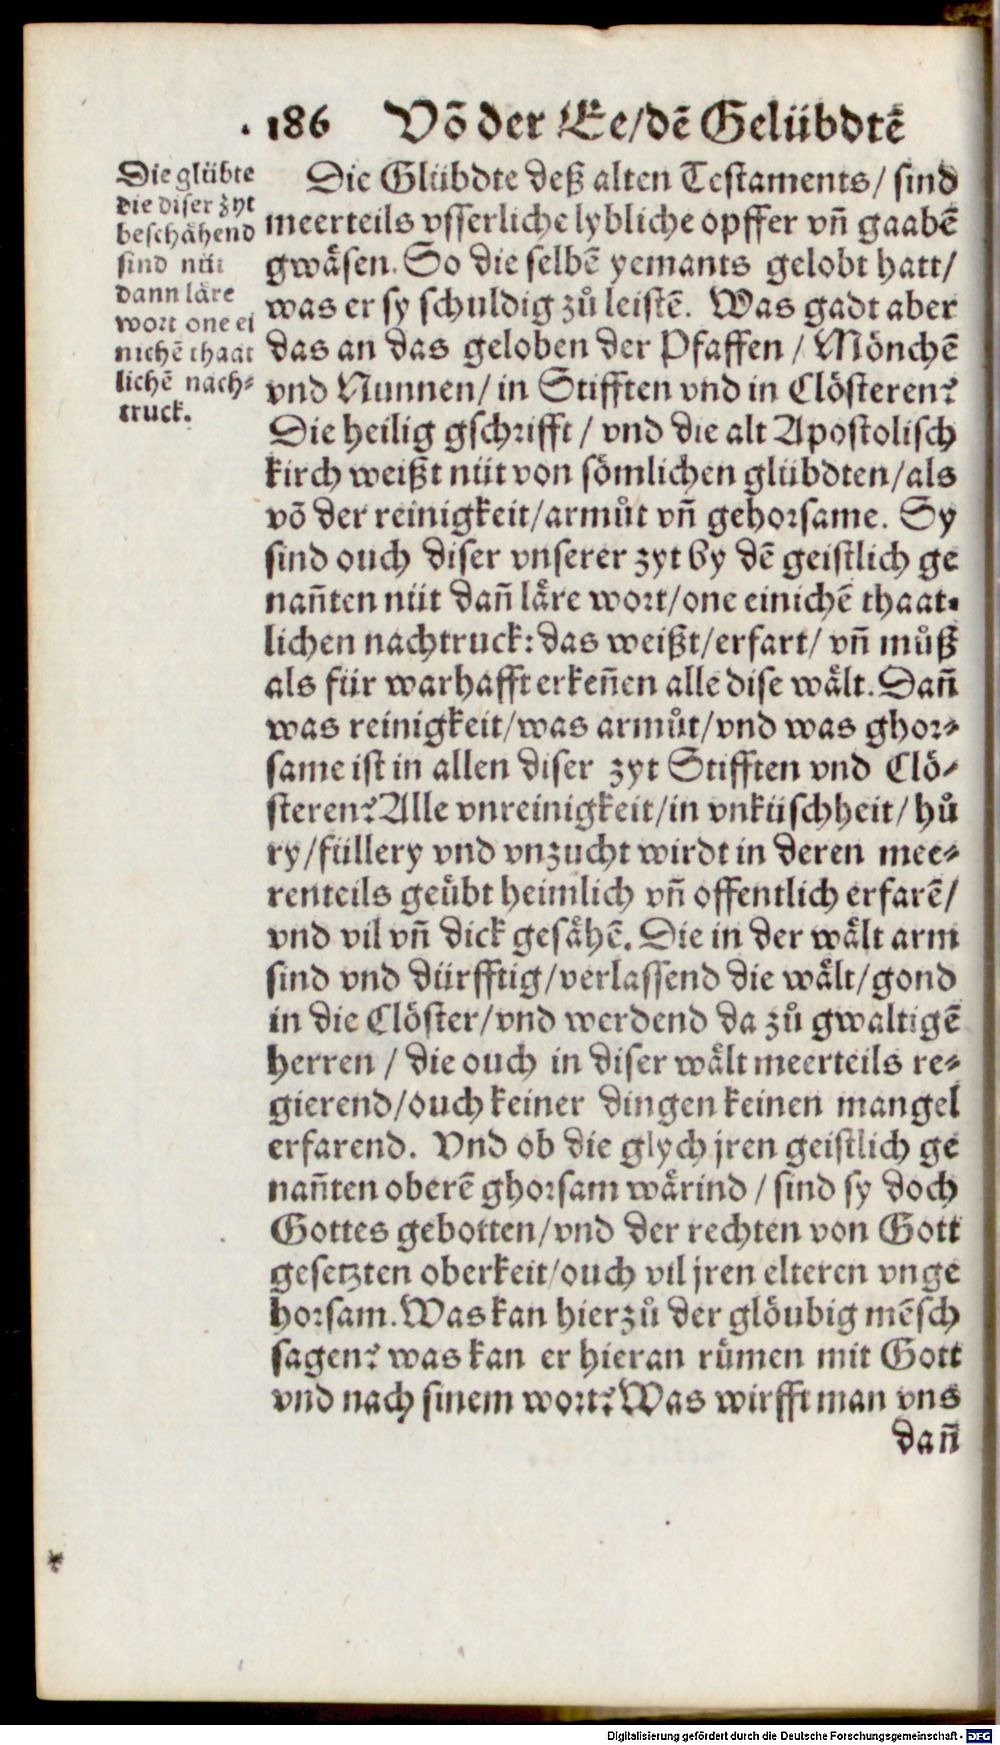 186 Võ der Ee/dẽ Gelübdtẽ
Die glübte
die diser zyt
beschähend
sind nüt
dann läre
wort one ei
nichẽ thaat
lichẽ nach⸗
truck.
Die Glübdte deß alten Testaments/ sind
meerteils vsserliche lybliche opffer vñ gaabẽ
gwäsen. So die selbẽ yemants gelobt hatt/
was er sy schuldig zů leistẽ. Was gadt aber
das an das geloben der Pfaffen / Mönchẽ
vnd Nunnen/ in Stifften vnd in Clösteren?
Die heilig gschrifft / vnd die alt Apostolisch
kirch weißt nüt von sömlichen glübdten/als
võ der reinigkeit/armůt vñ gehorsame. Sy
sind ouch diser vnserer zyt by dẽ geistlich ge
nañten nüt dañ läre wort/one einichẽ thaat⸗
lichen nachtruck: das weißt/erfart/ vñ můß
als für warhafft erkeñen alle dise wält. Dañ
was reinigkeit/was armůt/vnd was ghor⸗
same ist in allen diser zyt Stifften vnd Clö⸗
steren? Alle vnreinigkeit/in vnküschheit/ hů
ry/füllery vnd vnzucht wirdt in deren mee⸗
renteils geübt heimlich vñ offentlich erfarẽ/
vnd vil vñ dick gesähẽ. Die in der wält arm
sind vnd dürfftig/verlassend die wält/gond
in die Clöster/vnd werdend da zů gwaltigẽ
herren / die ouch in diser wält meerteils re⸗
gierend/ouch keiner dingen keinen mangel
erfarend. Vnd ob die glych jren geistlich ge
nañten oberẽ ghorsam wärind / sind sy doch
Gottes gebotten/vnd der rechten von Gott
gesetzten oberkeit/ouch vil jren elteren vnge
horsam. Was kan hierzů der glöubig mẽsch
sagen? was kan er hieran rümen mit Gott
vnd nach sinem wort? Was wirfft man vns
dañ
Digitalisierung gefördert durch die Deutsche Forschungsgemeinschaft - DFG